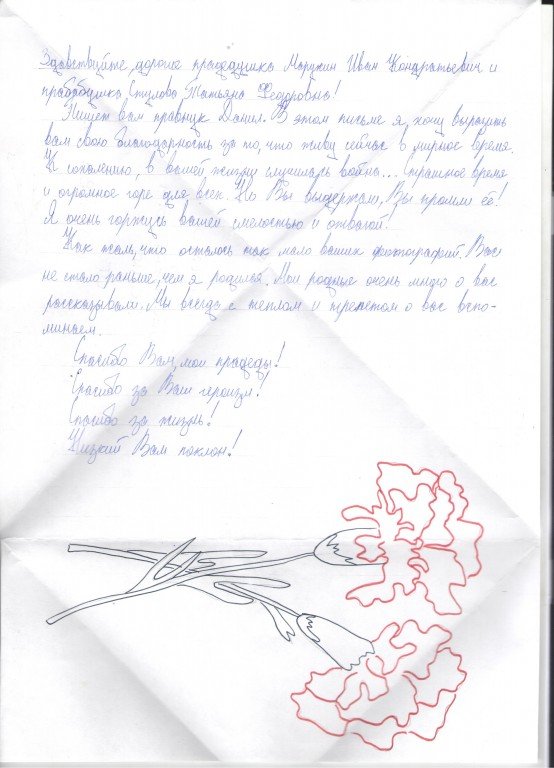 Здравствуйте, дорогие прадедушка Марухин Иван Кондратьевич и
прабабушка Стулова Татьяна Федоровна!
Пишет вам правнук Данил. В этом письме я хочу выразить
вам свою благодарность за то, что живу сейчас в мирное время.
К сожалению, в вашей жизни случилась война... Страшное время
и огромное горе для всех. Но Вы выдержали, Вы прошли её!
Я очень горжусь вашей смелостью и отвагой!
Как жаль, что осталось так мало ваших фотографий. Вас
не стало раньше, чем я родился. Мои родные очень много о вас
рассказывали. Мы всегда с теплом и трепетом о вас вспо-
минаем.
Спасибо Вам, мои прадеды!
Спасибо за Ваш героизм!
Спасибо за жизнь!
Низкий Вам поклон!